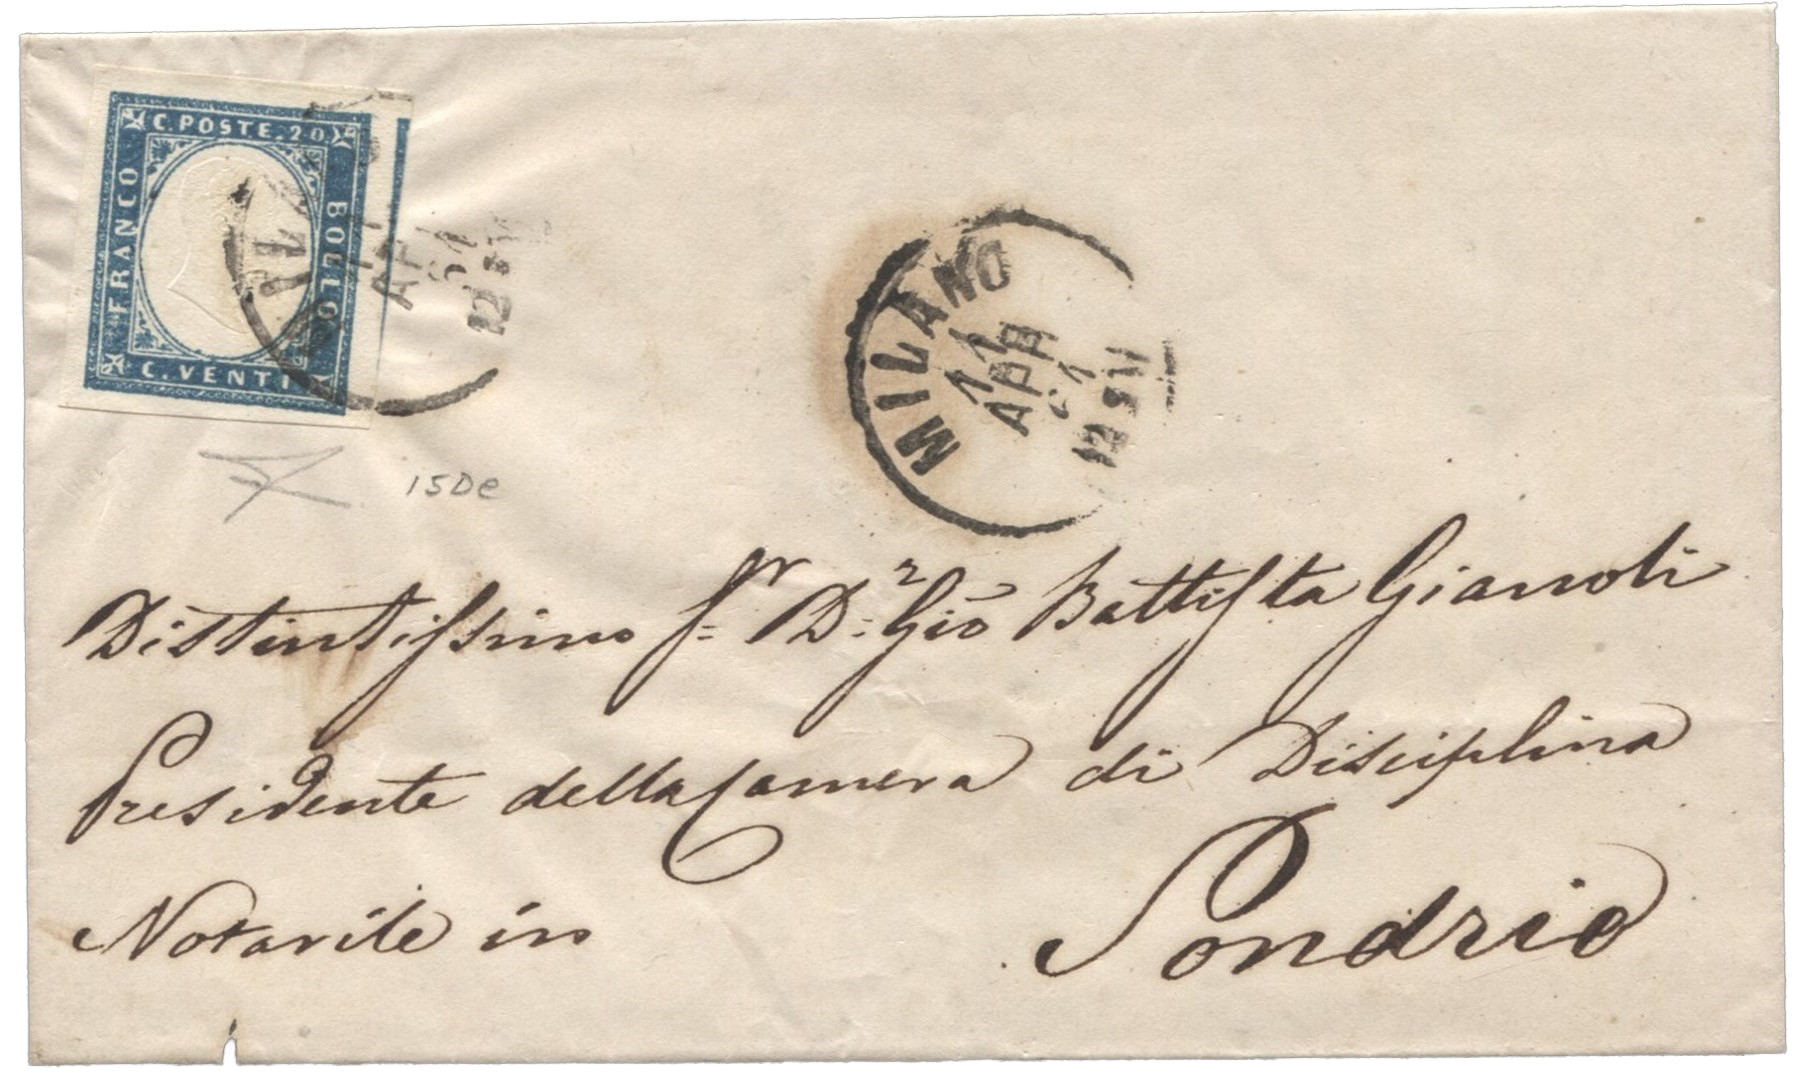 C. POSTE. 20
FRANCO
BOLLO
C. VENTI
MILANO
11
APR
61
12 SM
15De
Distintissimo Sr. Dr. Gio Battista Gianoli
Presidente della Camera di Disciplina
Notarile in
Sondrio